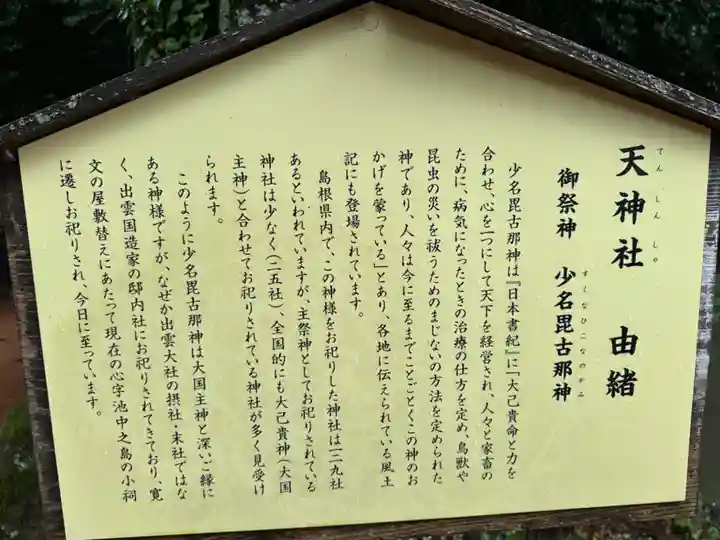 天神社　由緒
てんしんしゃ
御祭神　少名毘古那神
すくなひこなのかみ
少名毘古那神は『日本書紀』に「大己貴命と力を
合わせ、心を一つにして天下を経営され、人々と家畜の
ために、病気になったときの治療の仕方を定め、鳥獣や
昆虫の災いを祓うためのまじないの方法を定められた
神であり、人々は今に至るまでことごとくこの神のお
かげを蒙っている」とあり、各地に伝えられている風土
記にも登場されています。
島根県内で、この神様をお祀りした神社は一三九社
あるといわれていますが、主祭神としてお祀りされている
神社は少なく（二五社）、全国的にも大己貴神（大国
主神）と合わせてお祀りされている神社が多く見受け
られます。
このように少名毘古那神は大国主神と深いご縁に
ある神様ですが、なぜか出雲大社の摂社・末社ではな
く、出雲国造家の邸内社にお祀りされてきており、寛
文の屋敷替えにあたって現在の心字池中之島の小祠
に遷しお祀りされ、今日に至っています。